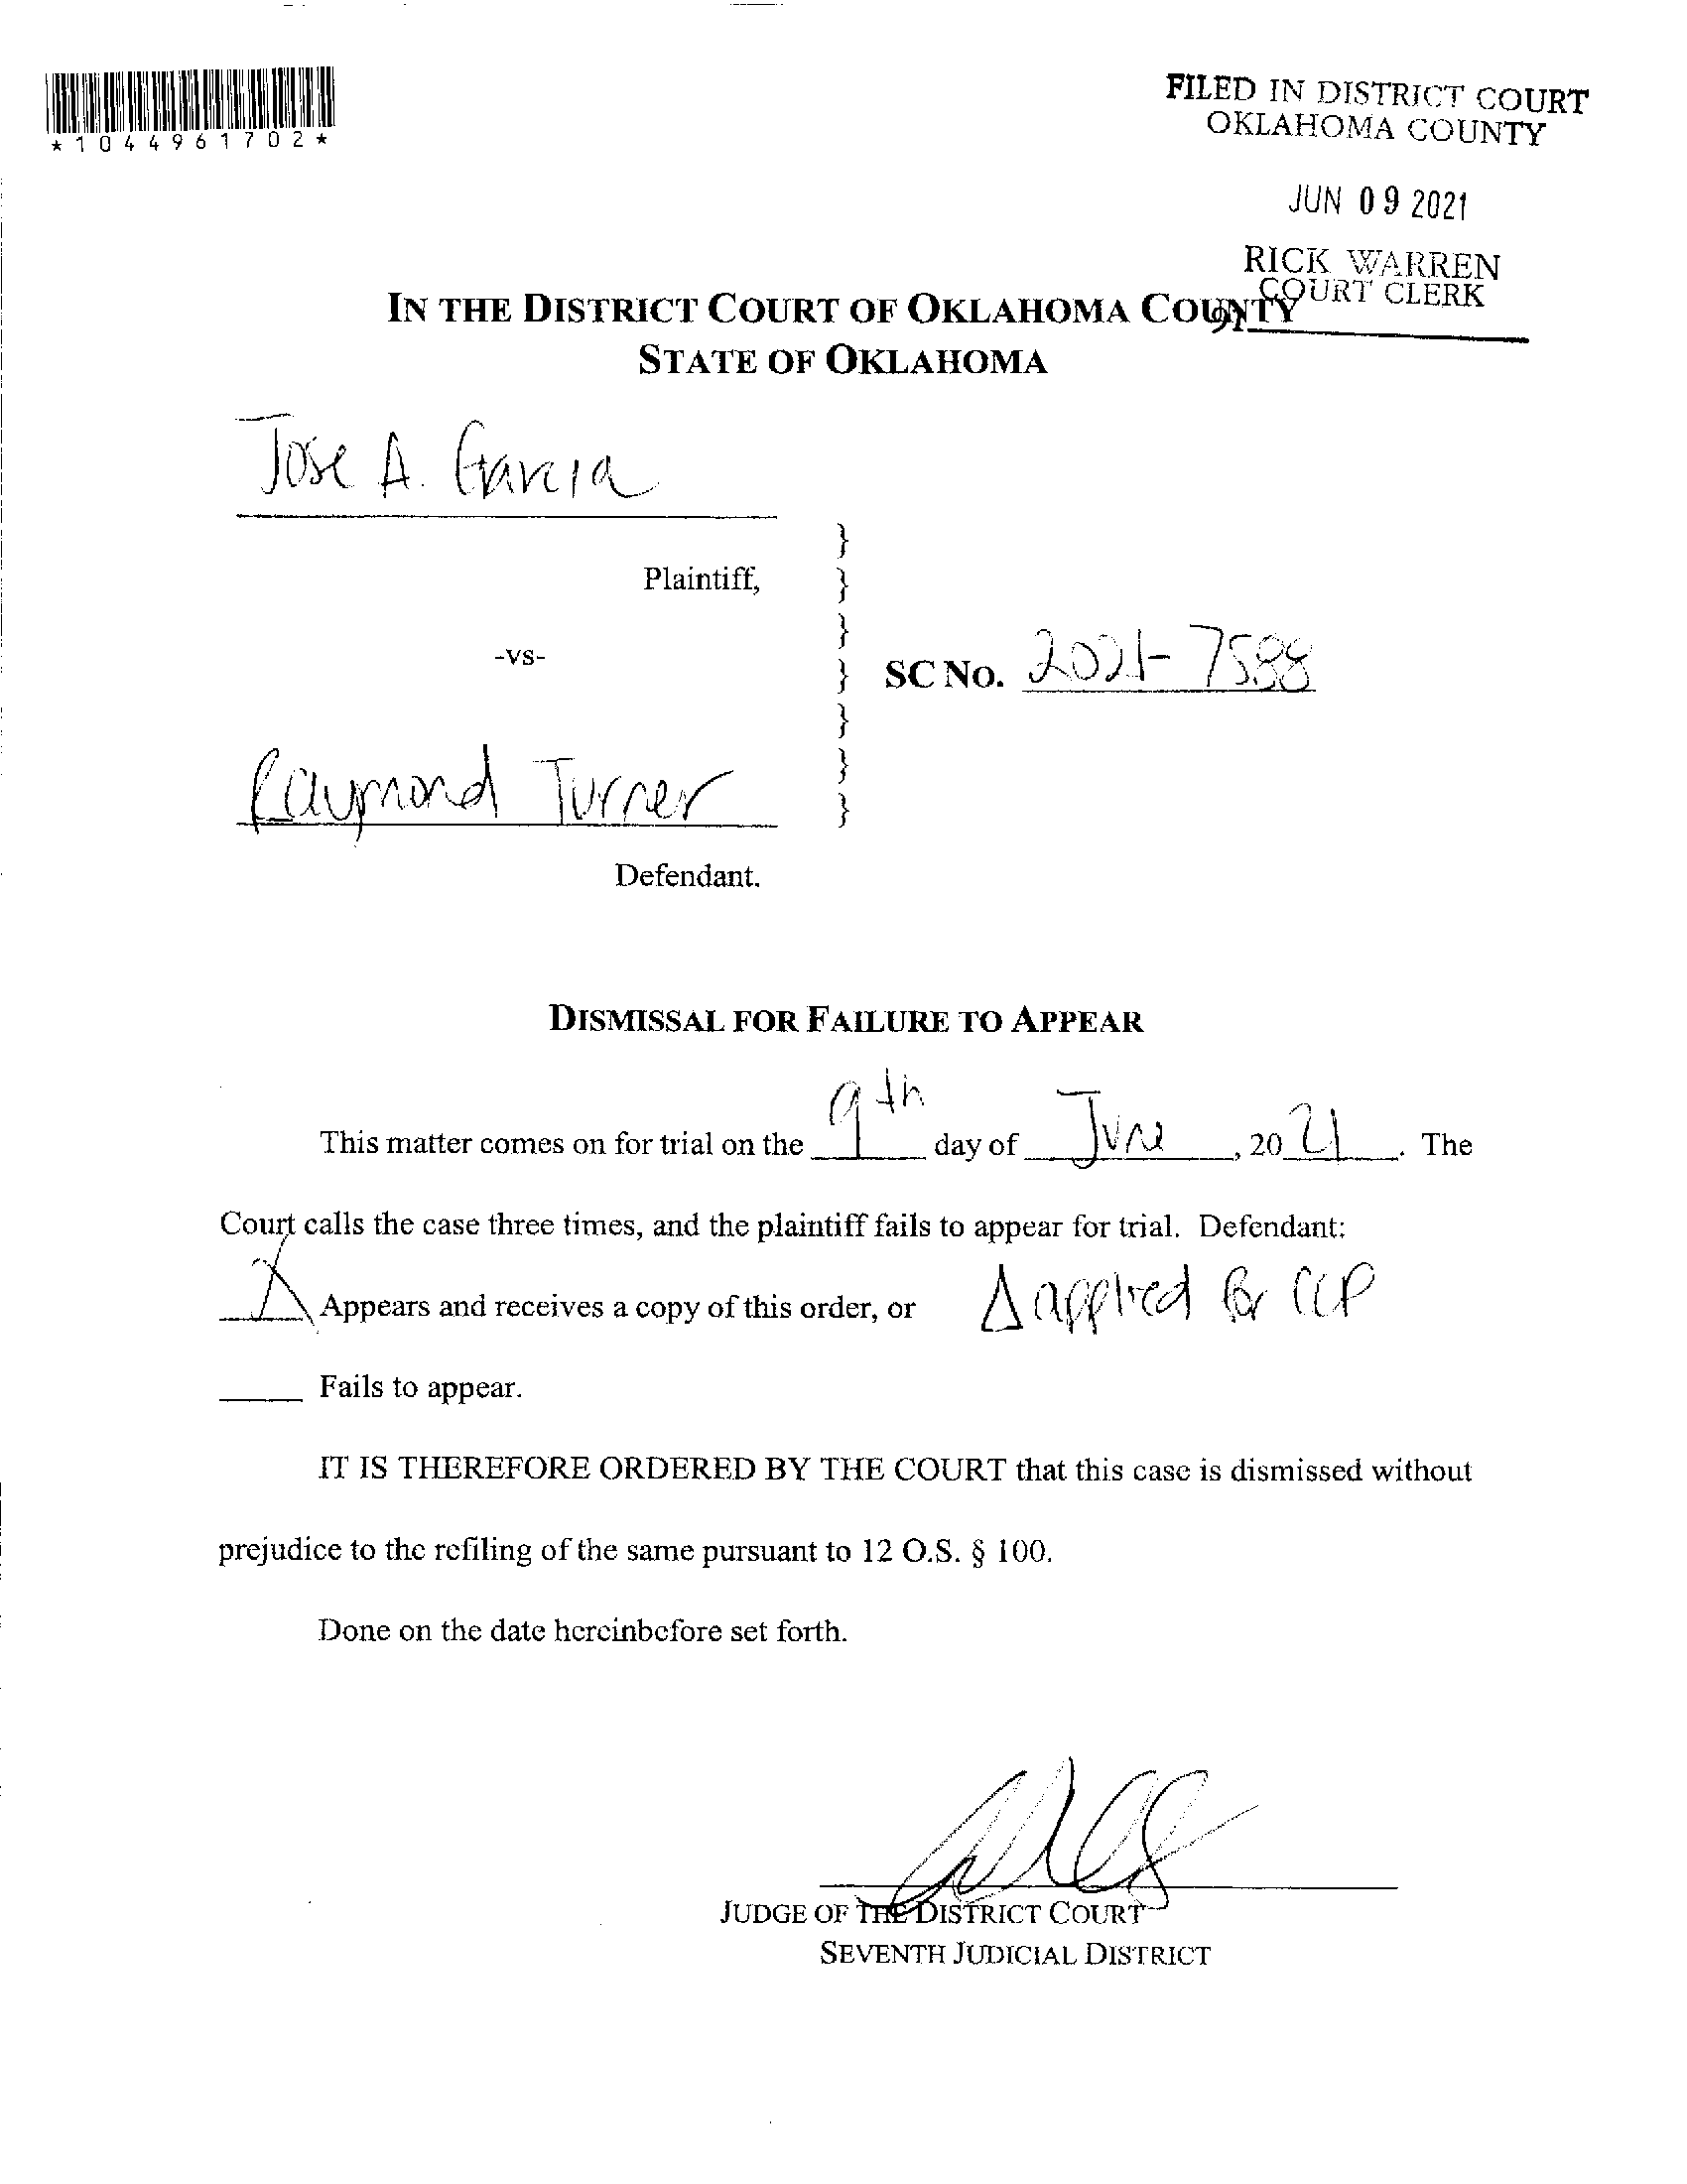 *1044961702*
FILED IN DISTRICT COURT
OKLAHOMA COUNTY
JUN 09 2021
RICK WARREN
COURT CLERK
IN THE DISTRICT COURT OF OKLAHOMA COUNTY
STATE OF OKLAHOMA
Jose A. Garcia
}
Plaintiff, }
}
-vs-
} SC No. 2021-7588
}
}
Raymond Turner }
Defendant.
DISMISSAL FOR FAILURE TO APPEAR
This matter comes on for trial on the 9th day of June, 2021. The
Court calls the case three times, and the plaintiff fails to appear for trial. Defendant:
X Appears and receives a copy of this order, or Δ applied for CCP
____ Fails to appear.
IT IS THEREFORE ORDERED BY THE COURT that this case is dismissed without
prejudice to the refiling of the same pursuant to 12 O.S. § 100.
Done on the date hereinbefore set forth.
JUDGE OF THE DISTRICT COURT
SEVENTH JUDICIAL DISTRICT